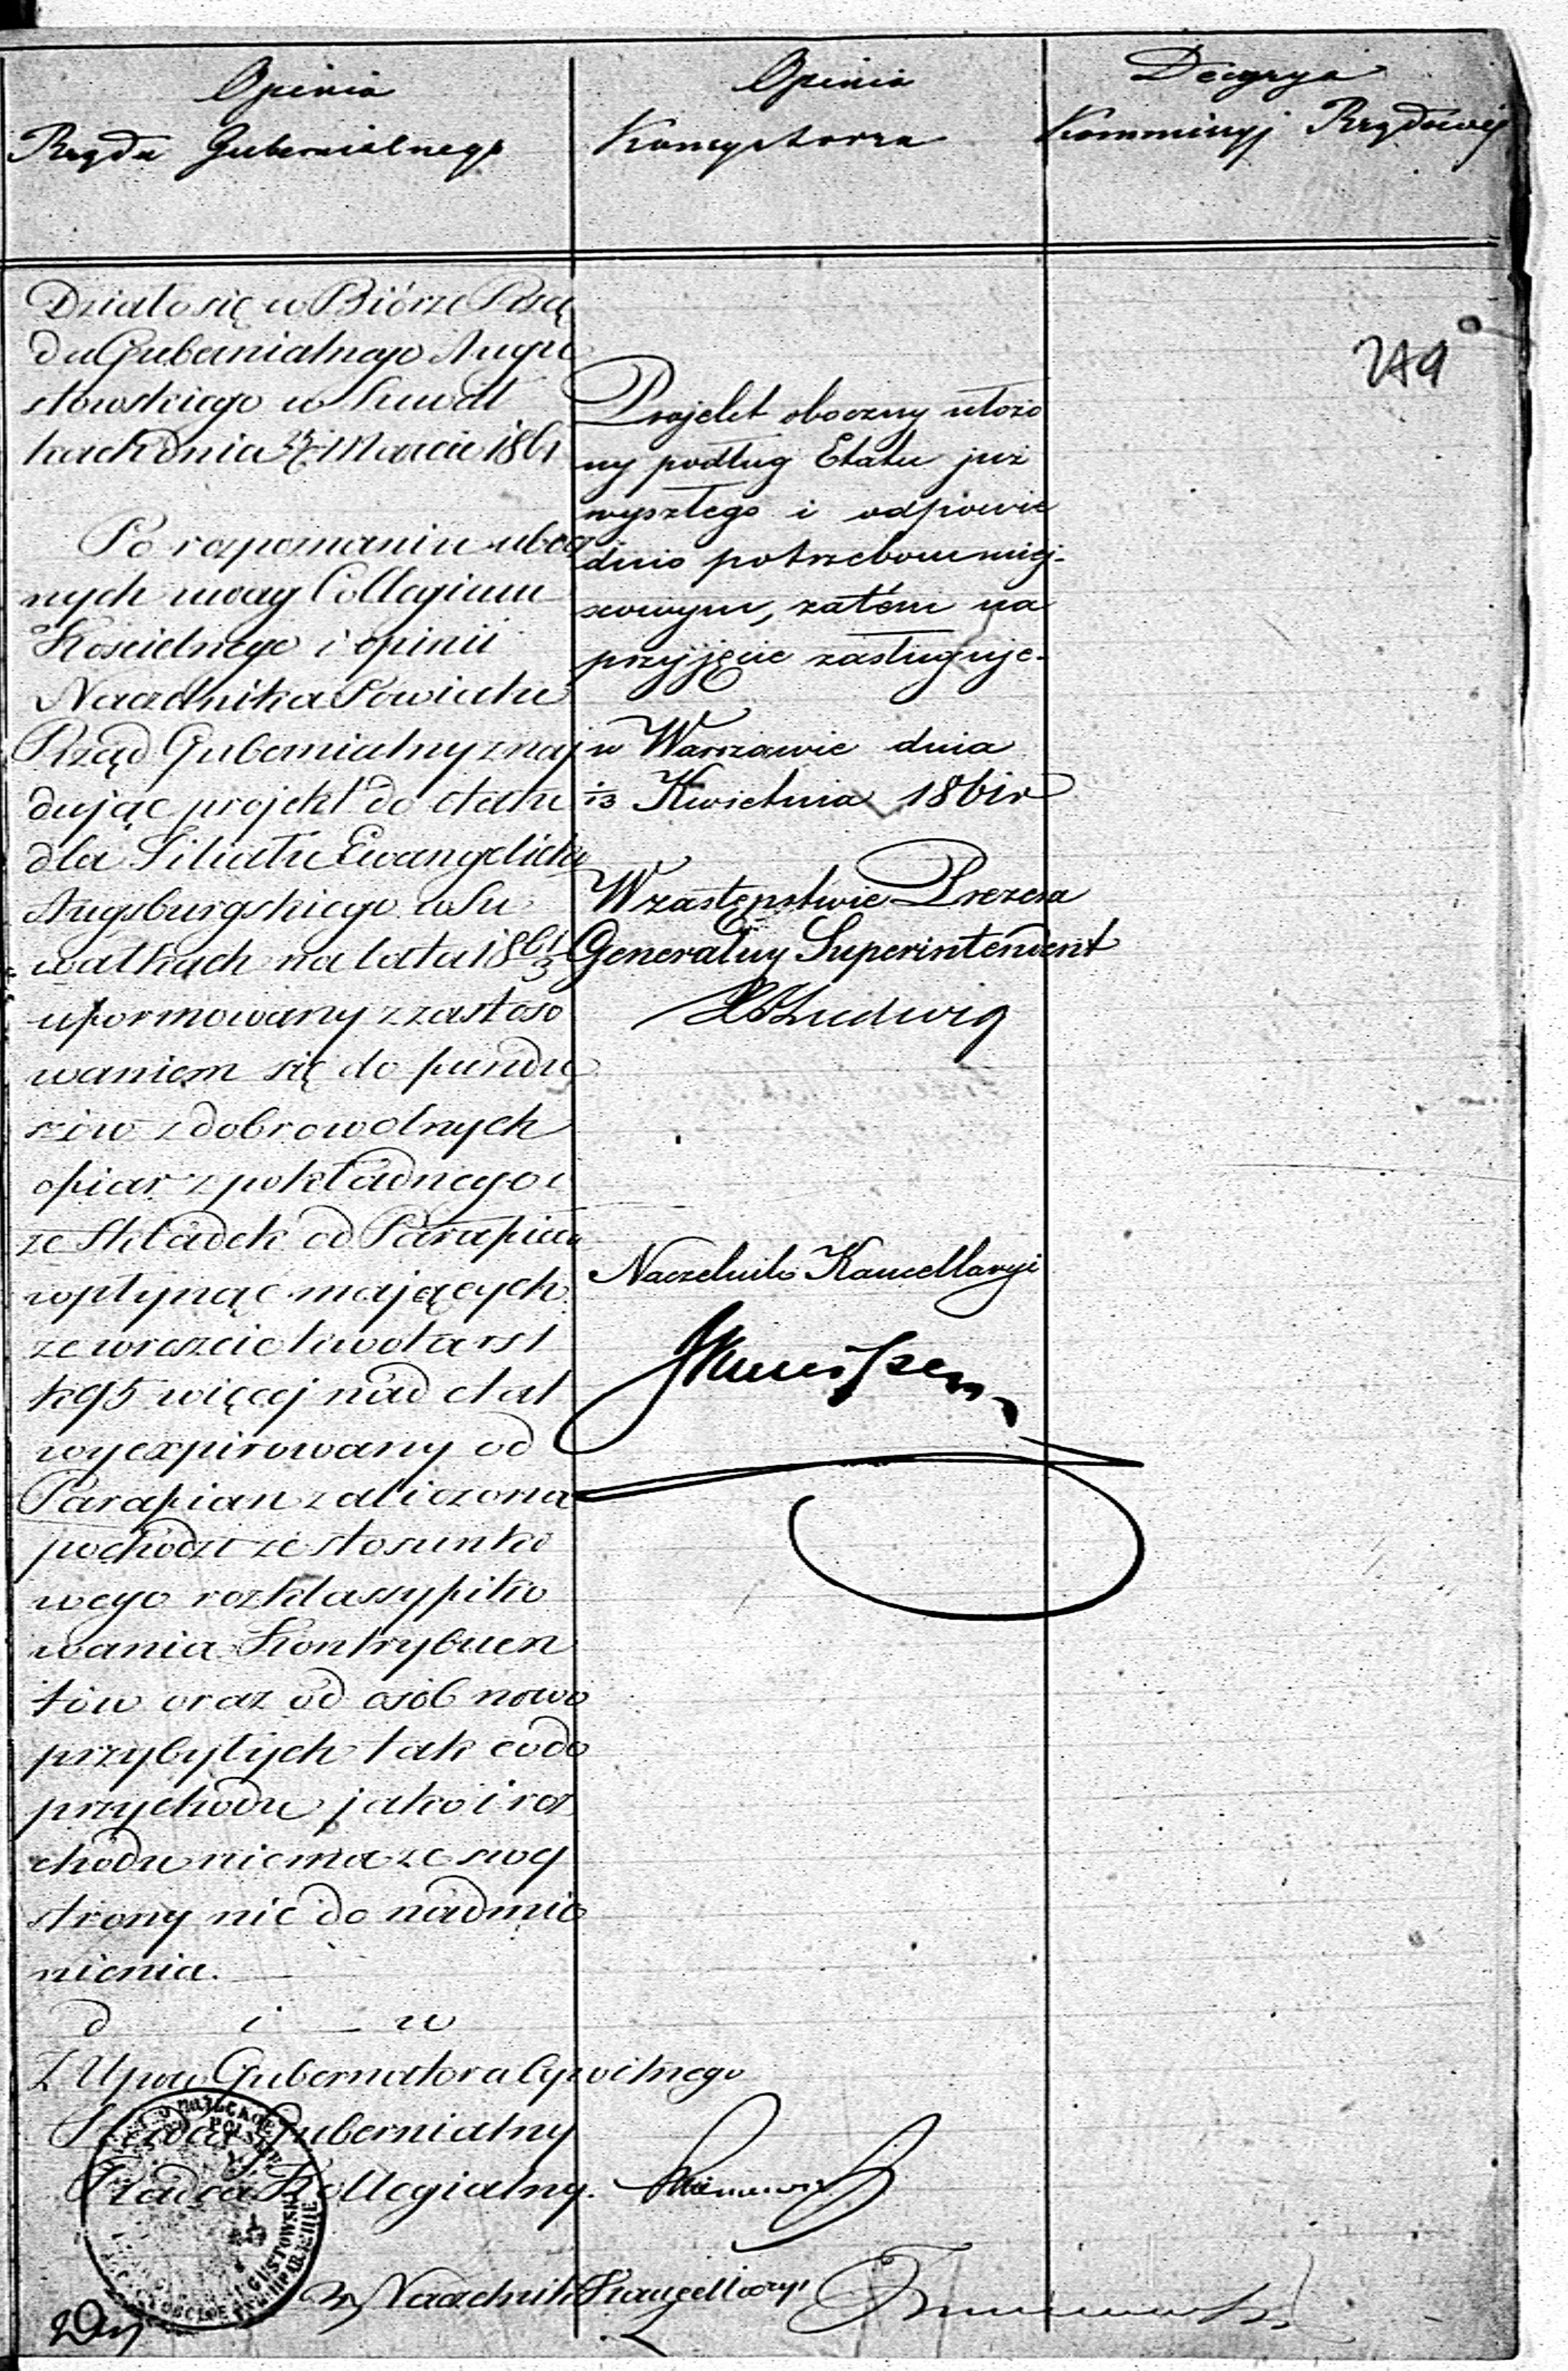 Opinia
Rządu Gubernialnego
Opinia
Konsystorza
Decyzya
Kommissyj Rządowej
249
Działo się w Biórze Rzą
du Gubernialnego Augu
stowskiego w Suwał
kach dnia Marca 1861
Po rozpoznaniu ubocz
nych uwag Collegium
Kościelnego i opinii
Naczelnika Powiatu
Rząd Gubernialny znaj
dując projekt do etatu
dla Filiału Ewangelicko
Augsburgskiego w Su
wałkach na lata 1861/3
uformowany z zastoso
waniem się do fundu
szów z dobrowolnych
ofiar z pokładnego i
ze Składek od Parafian
wpłynąć mających
ze wreszcie kwota rs 1
k 95 więcej nad etat
wyexpirowany od
Parafian zaliczona
pochodzi ze stosunko
wego rozklassyfiko
wania Kontrybuen
tów oraz od osób nowo
przybyłych tak co do
przychodu jako i roz
chodu niema ze swej
strony nic do nadmie
nienia.
d i w
Z Upow Gubernatora Cywilnego
Radca Gubernialny
Radca Kollegialny.
Naczelnik Kancellaryi
Projekt oboczny ułożo
ny podług Etatu już
wyszłego i odpowie
dnio potrzebom miej-
scowym, zatém na
przyjęcie zasługuje.
w Warszawie dnia
13 Kwietnia 1861 r
W zastępstwie Prezesa
Generalny Superintendent
Ludwig
Naczelnik Kancellaryi